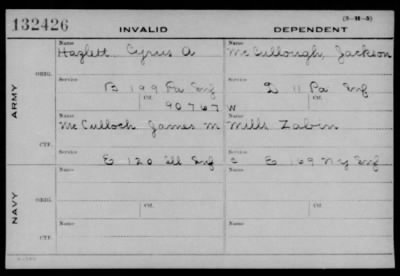 132426 INVALID DEPENDENT (3-H-5)
Name Name
Hazlett Cyrus A McCullough, Jackson
ORIG. Service Service
B 199 Pa Inf D 11 Pa Inf
Ctf. Ctf.
90767 W
ARMY
Name Name
McCulloch James M Mills Zabin
CTF. Service Service
E 120 Ill Inf C E 169 N Y Inf
Name Name
ORIG. Ctf. Ctf.
NAVY
Name Name
CTF.